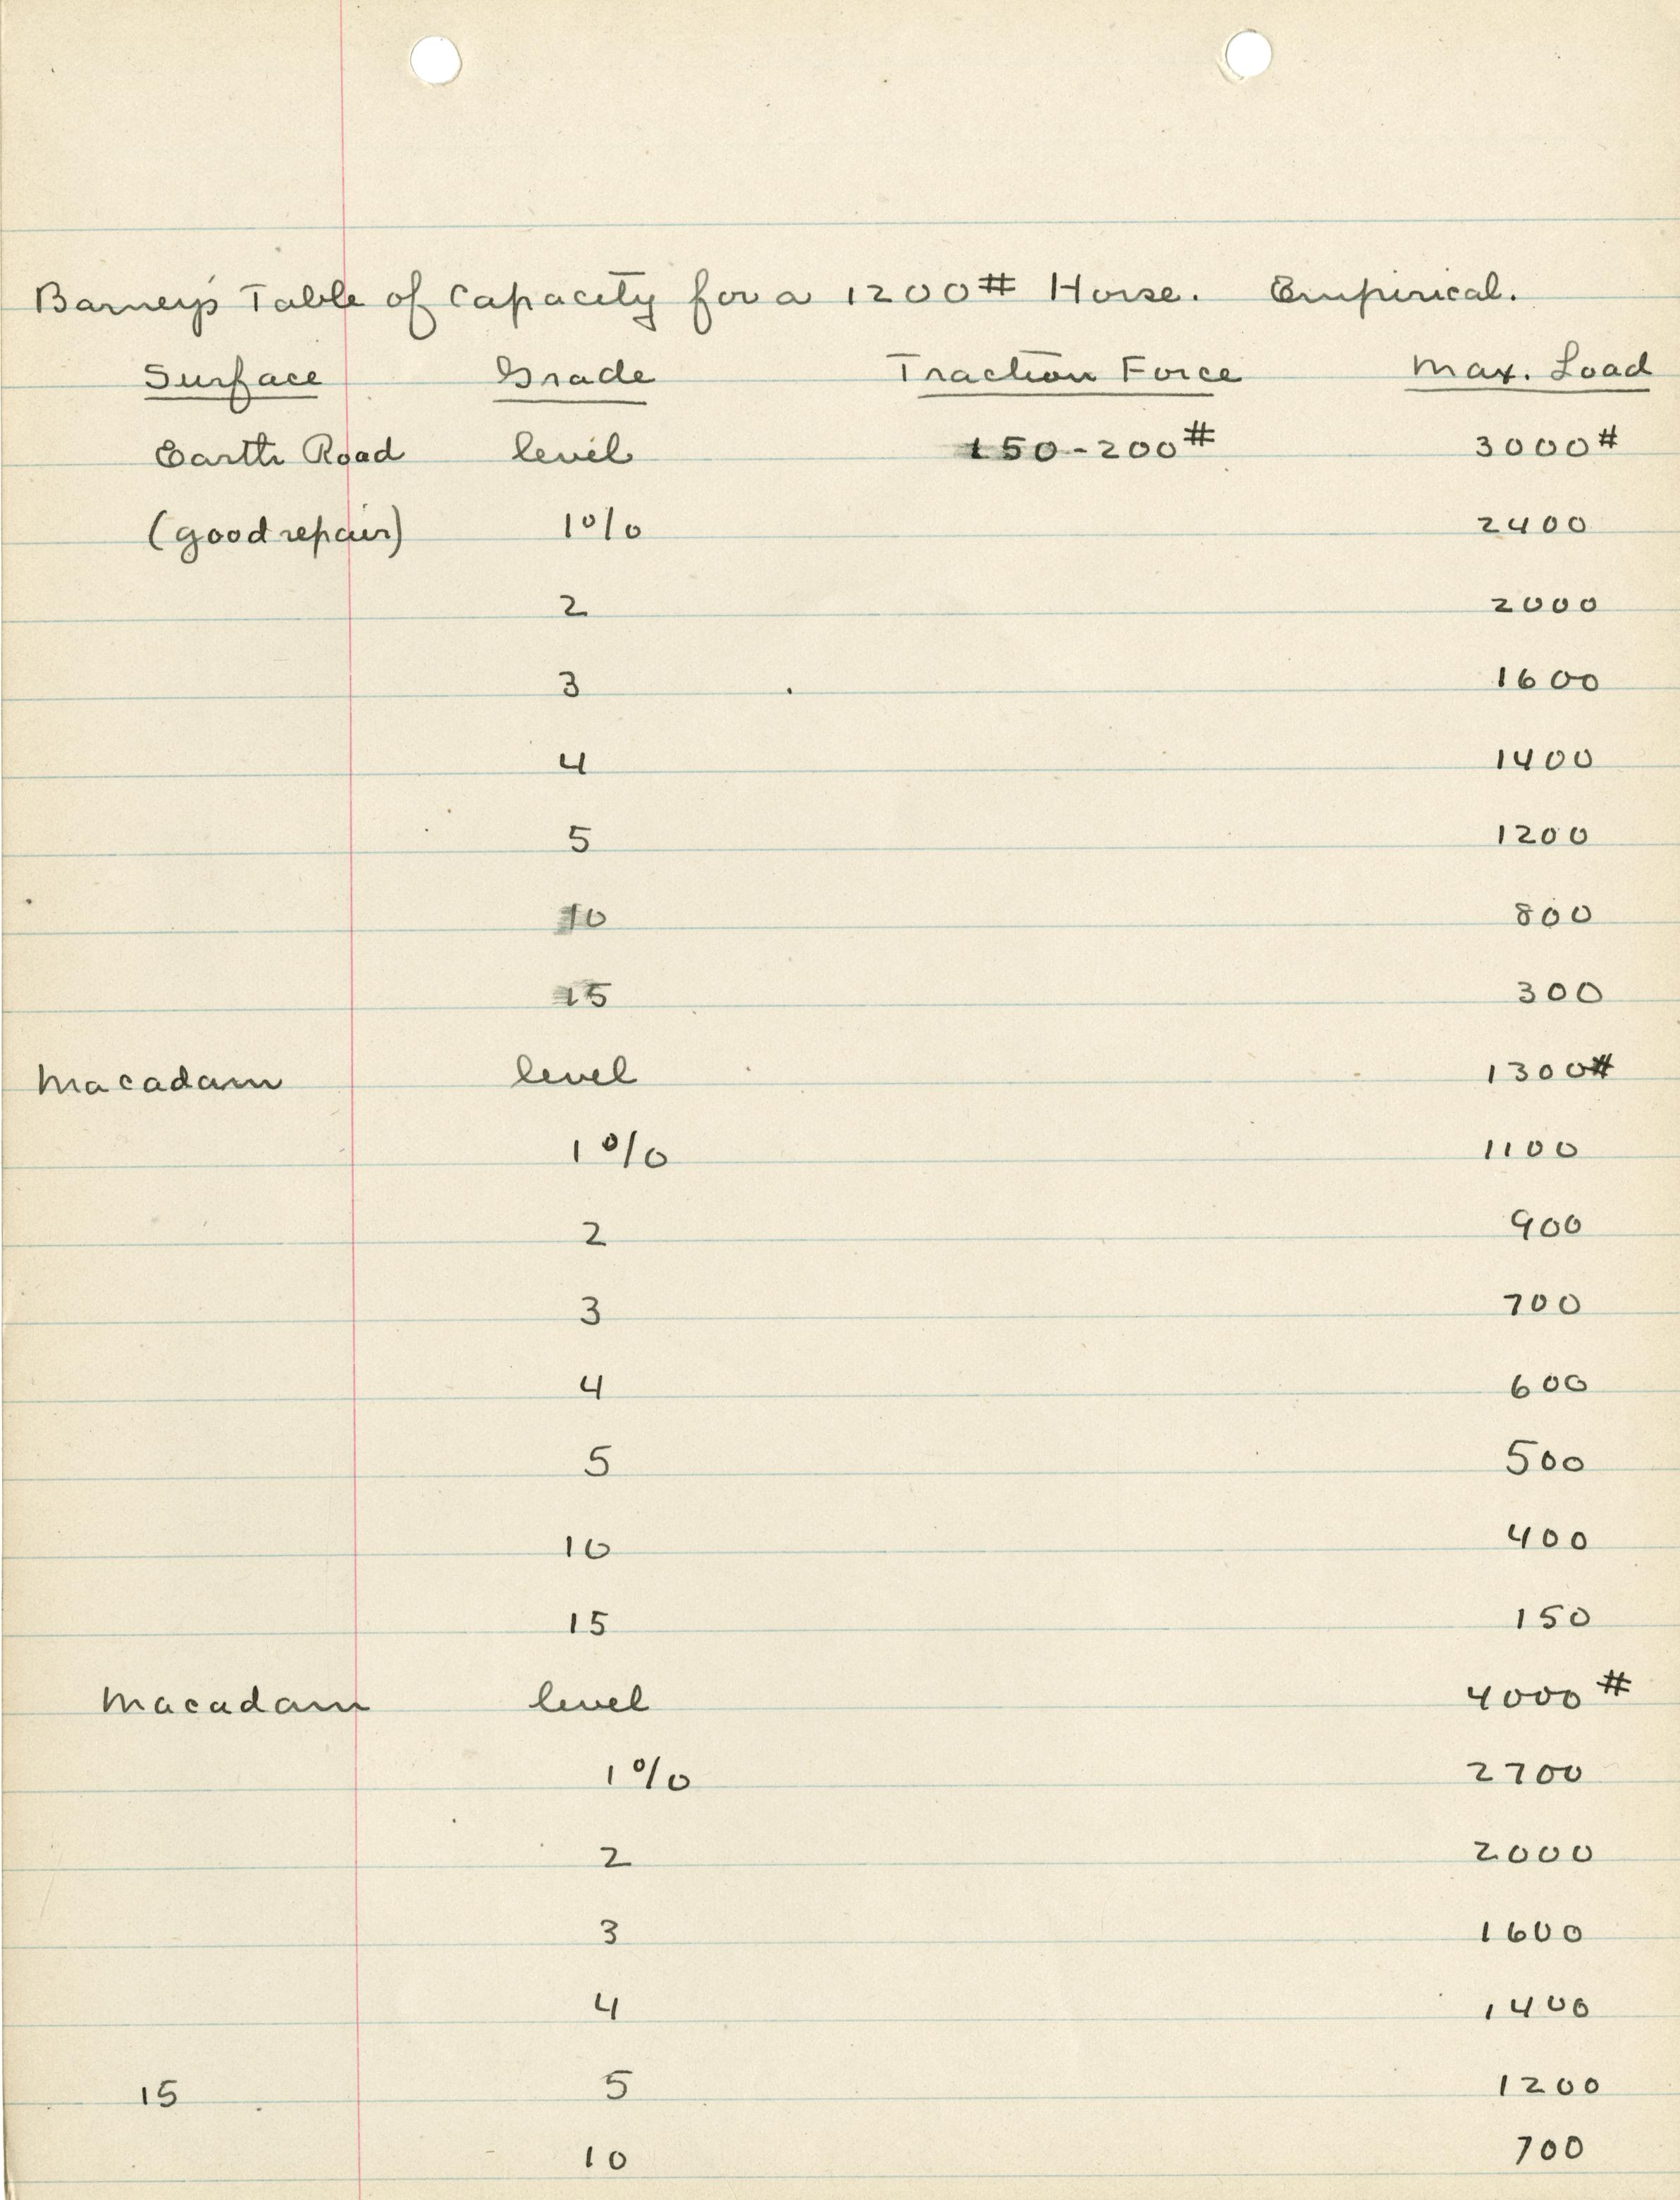 Barney's Table of Capacity for a 1200# Horse. Empirical.
Surface Grade Traction Force Max. Load
Earth Road level 150-200# 3000#
(good repair) 1% 2400
2 2000
3 1600
4 1400
5 1200
10 800
15 300
Macadam level 1300#
1% 1100
2 900
3 700
4 600
5 500
10 400
15 150
Macadam level 4000#
1% 2700
2 2000
3 1600
4 1400
15 5 1200
10 700